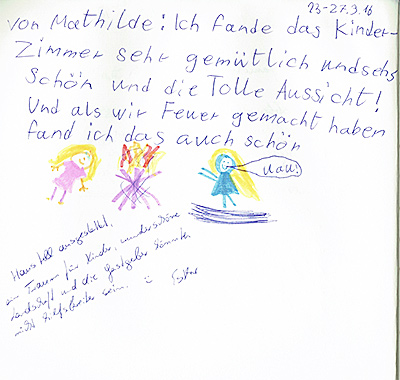 23-27.3.16
von Mathilde: Ich fande das Kinder-
Zimmer sehr gemütlich und sehr
schön und die Tolle Aussicht!
Und als wir Feuer gemacht haben
fand ich das auch schön
Wau!
Haus toll ausgestattet,
ein Traum für Kinder, wunderschöne
Landschaft und die Gastgeber könnten
nicht hilfsbereiter sein. :)